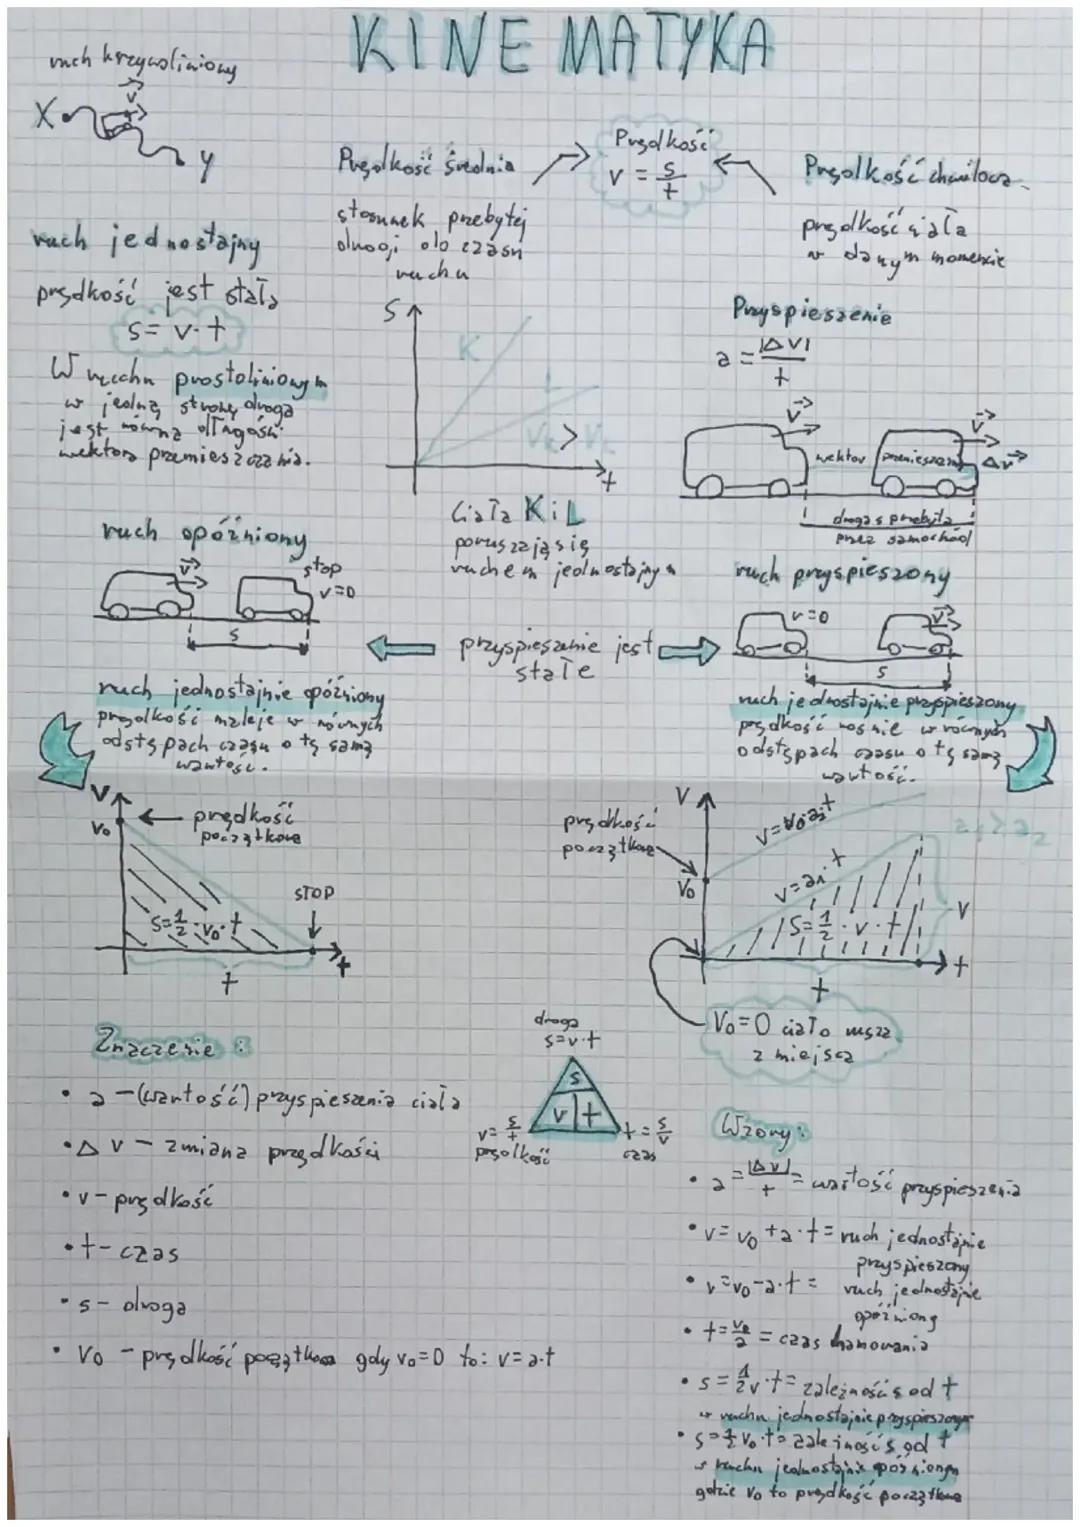 KINEMATYKA
ruch krzywoliniowy
v
X
y
Prędkość
v = s/t
Prędkość średnia
stosunek przebytej
drogi do czasu
ruchu
Prędkość chwilowa
prędkość ciała
w danym momencie
ruch jednostajny
prędkość jest stała
s = v·t
W ruchu prostoliniowym
w jedną stronę droga
jest równa długości
wektora przemieszczenia.
S
K
L
Vk > VL
t
Ciała K i L
poruszają się
ruchem jednostajnym
Przyspieszenie
a = |Δv|/t
v
v
wektor przemieszczenia
Δv
droga s przebyta
przez samochód
ruch opóźniony
v
stop
v=0
s
przyspieszenie jest
stałe
ruch przyspieszony
v=0
v
s
ruch jednostajnie opóźniony
prędkość maleje w równych
odstępach czasu o tę samą
wartość.
ruch jednostajnie przyspieszony
prędkość rośnie w równych
odstępach czasu o tę samą
wartość.
V
V₀
prędkość
początkowa
STOP
s=1/2·v₀·t
t
t
prędkość
początkowa
V
V₀
v=a₁t
a₁>a₂
s=1/2·v·t
v
t
t
V₀=0 ciało rusza
z miejsca
Znaczenie:
• a – (wartość) przyspieszenia ciała
• Δv – zmiana prędkości
• v – prędkość
• t – czas
• s – droga
• V₀ – prędkość początkowa gdy v₀=0 to: v=a·t
droga
s=v·t
s
v t
v=s/t
prędkość
t=s/v
czas
Wzory:
• a=|Δv|/t = wartość przyspieszenia
• v=v₀+a·t = ruch jednostajnie
przyspieszony
• v=v₀-a·t = ruch jednostajnie
opóźniony
• t=v₀/a = czas hamowania
• s=1/2v·t= zależność s od t
w ruchu jednostajnie przyspieszonym
• s=1/2v₀·t= zależność s od t
w ruchu jednostajnie opóźnionym
gdzie v₀ to prędkość początkowa